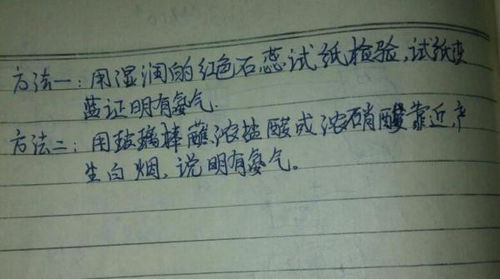 方法一：用湿润的红色石蕊试纸检验，试纸变
蓝证明有氨气.
方法二：用玻璃棒蘸浓盐酸或浓硝酸靠近产
生白烟，说明有氨气。